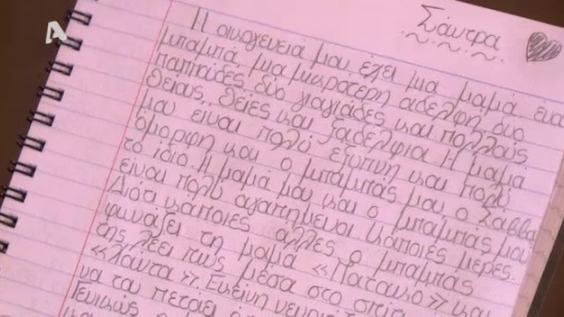 Σάντρα
Η οικογένειά μου έχει μια μαμά, ένα
μπαμπά μια μικρότερη αδελφή δύο
παππούδες, δύο γιαγιάδες και πολλούς
θείους, θείες και ξαδέλφια. Η μαμά
μου είναι πολύ έξυπνη και πολύ
όμορφη και ο μπαμπάς μου, ο Σάββα
το ίδιο. Η μαμά μου και ο μπαμπάς μου
είναι πολύ αγαπημένοι κάποιες μέρες.
Διότι κάποιες άλλες ο μπαμπάς
φωνάζει τη μαμά και
της λέει πως μέσα στο σπίτι
Εκείνη
να του πετάει
Γενικώς ο